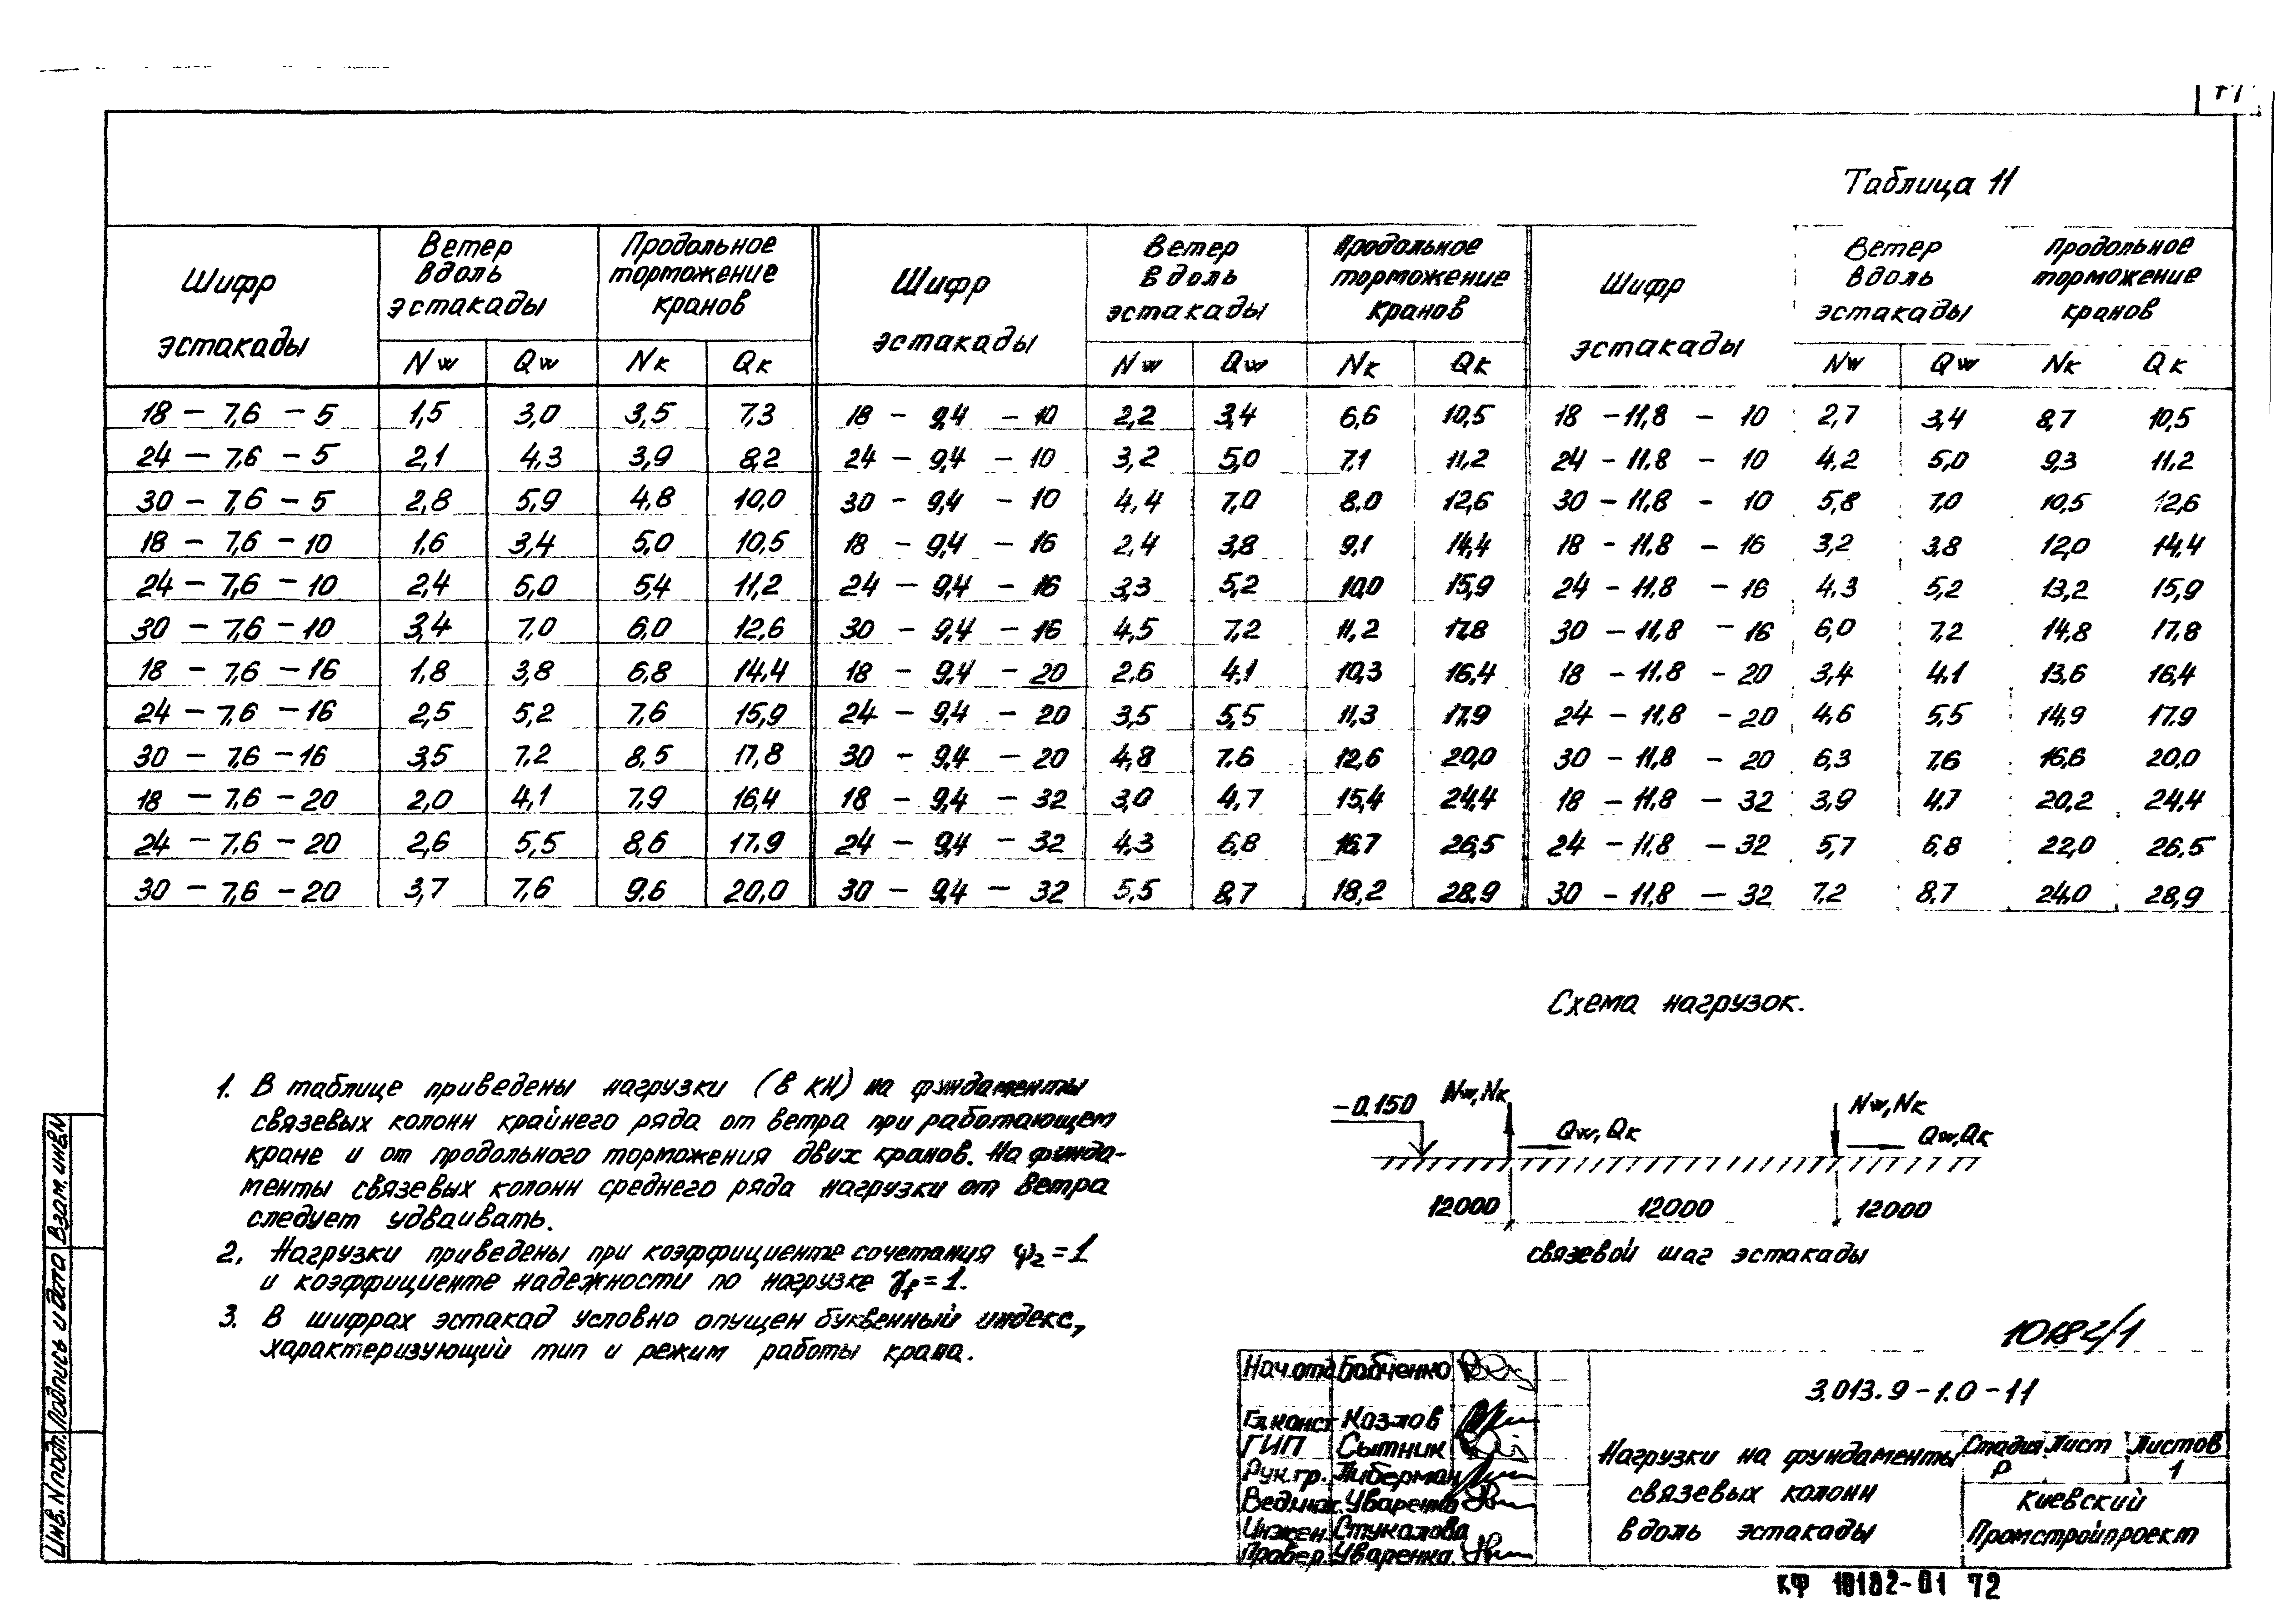 Таблица 11
Шифр эстакады | Ветер вдоль эстакады | Продольное торможение кранов | Шифр эстакады | Ветер вдоль эстакады | Продольное торможение кранов | Шифр эстакады | Ветер вдоль эстакады | Продольное торможение кранов
Nw | Qw | Nк | Qк | Nw | Qw | Nк | Qк | Nw | Qw | Nк | Qк
18 – 7,6 – 5 | 1,5 | 3,0 | 3,5 | 7,3 | 18 – 9,4 – 10 | 2,2 | 3,4 | 6,6 | 10,5 | 18 – 11,8 – 10 | 2,7 | 3,4 | 8,7 | 10,5
24 – 7,6 – 5 | 2,1 | 4,3 | 3,9 | 8,2 | 24 – 9,4 – 10 | 3,2 | 5,0 | 7,1 | 11,2 | 24 – 11.8 – 10 | 4,2 | 5,0 | 9,3 | 11,2
30 – 7,6 – 5 | 2,8 | 5,9 | 4,8 | 10,0 | 30 – 9,4 – 10 | 4,4 | 7,0 | 8,0 | 12,6 | 30 – 11,8 – 10 | 5,8 | 7,0 | 10,5 | 12,6
18 – 7,6 – 10 | 1,6 | 3,4 | 5,0 | 10,5 | 18 – 9,4 – 16 | 2,4 | 3,8 | 9,1 | 14,4 | 18 – 11,8 – 16 | 3,2 | 3,8 | 12,0 | 14,4
24 – 7,6 – 10 | 2,4 | 5,0 | 5,4 | 11,2 | 24 – 9,4 – 16 | 3,3 | 5,2 | 10,0 | 15,9 | 24 – 11.8 – 16 | 4,3 | 5,2 | 13,2 | 15,9
30 – 7,6 – 10 | 3,4 | 7,0 | 6,0 | 12,6 | 30 – 9,4 – 16 | 4,5 | 7,2 | 11,2 | 17,8 | 30 – 11,8 – 16 | 6,0 | 7,2 | 14,8 | 17,8
18 – 7,6 – 16 | 1,8 | 3,8 | 6,8 | 14,4 | 18 – 9,4 – 20 | 2,6 | 4,1 | 10,3 | 16,4 | 18 – 11.8 – 20 | 3,4 | 4,1 | 13,6 | 16,4
24 – 7,6 – 16 | 2,5 | 5,2 | 7,6 | 15,9 | 24 – 9,4 – 20 | 3,5 | 5,5 | 11,3 | 17,9 | 24 – 11,8 – 20 | 4,6 | 5,5 | 14,9 | 17,9
30 – 7,6 – 16 | 3,5 | 7,2 | 8,5 | 17,8 | 30 – 9,4 – 20 | 4,8 | 7,6 | 12,6 | 20,0 | 30 – 11,8 – 20 | 6,3 | 7,6 | 16,6 | 20,0
18 – 7,6 – 20 | 2,0 | 4,1 | 7,9 | 16,4 | 18 – 9,4 – 32 | 3,0 | 4,7 | 15,4 | 24,4 | 18 – 11,8 – 32 | 3,9 | 4,7 | 20,2 | 24,4
24 – 7,6 – 20 | 2,6 | 5,5 | 8,6 | 17,9 | 24 – 9,4 – 32 | 4,3 | 6,8 | 16,7 | 26,5 | 24 – 11,8 – 32 | 5,7 | 6,8 | 22,0 | 26,5
30 – 7,6 – 20 | 3,7 | 7,6 | 9,6 | 20,0 | 30 – 9,4 – 32 | 5,5 | 8,7 | 18,2 | 28,9 | 30 – 11,8 – 32 | 7,2 | 8,7 | 24,0 | 28,9
1. В таблице приведены нагрузки (в кН) на фундаменты
связевых колонн крайнего ряда от ветра при работающем
кране и от продольного торможения двух кранов. На фунда-
менты связевых колонн среднего ряда нагрузки от ветра
следует удваивать.
2. Нагрузки приведены при коэффициенте сочетания ψ2=1
и коэффициенте надежности по нагрузке γf=1.
3. В шифрах эстакад условно опущен буквенный индекс,
характеризующий тип и режим работы крана.
Схема нагрузок.
–0.150
Nw, Nк
Qw, Qк
Nw, Nк
Qw, Qк
12000
12000
12000
связевой шаг эстакады
10182/1
Нач.отд Бобченко
Гл.конст Козлов
ГИП Сытник
Рук.гр. Либерман
Вед.инж. Уваренко
Инжен. Стукалова
Провер. Уваренко
3.013.9-1.0-11
Нагрузки на фундаменты
связевых колонн
вдоль эстакады
Стадия Лист Листов
Р 1
Киевский
Промстройпроект
Инв.N подл. Подпись и дата Взам.инв.N
КФ 10182-01 72